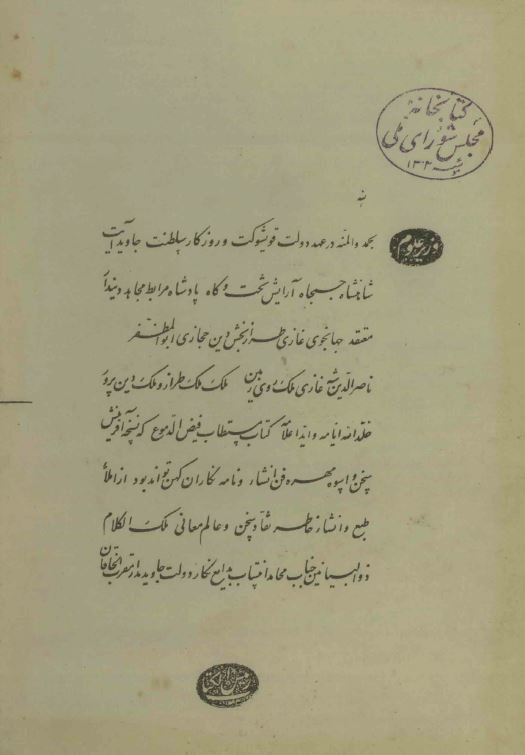 کتابخانهٔ
مجلس شورای ملی
۱۳۰۲
وزیر علوم
بحمد والمنّه در عهد دولت قویشوکت و روزگار سلطنت جاوید آیت
شاهنشاه جمجاه آرایش تخت و گاه پادشاه مرابط مجاهد دیندار
معتقد جهانجوی غازی طراز بخش دین حجازی ابوالمظفر
ناصرالدین شاه غازی ملک روی زمین ملک ملک طراز و ملک دین پرور
خلدالله ایامه و ابد اعلامه کتاب مستطاب فیض الدموع که نسخهٔ آفرینش
سخن و اسوه مهره فن انشاء و نامه نگاران کهن تواند بود از املاء
طبع و انشاء خاطر نقاد سخن و عالم معانی ملک الکلام
ذوالبیانین جناب محامد انتساب بدایع نگار دولت جاوید مدار مقرب الخاقان